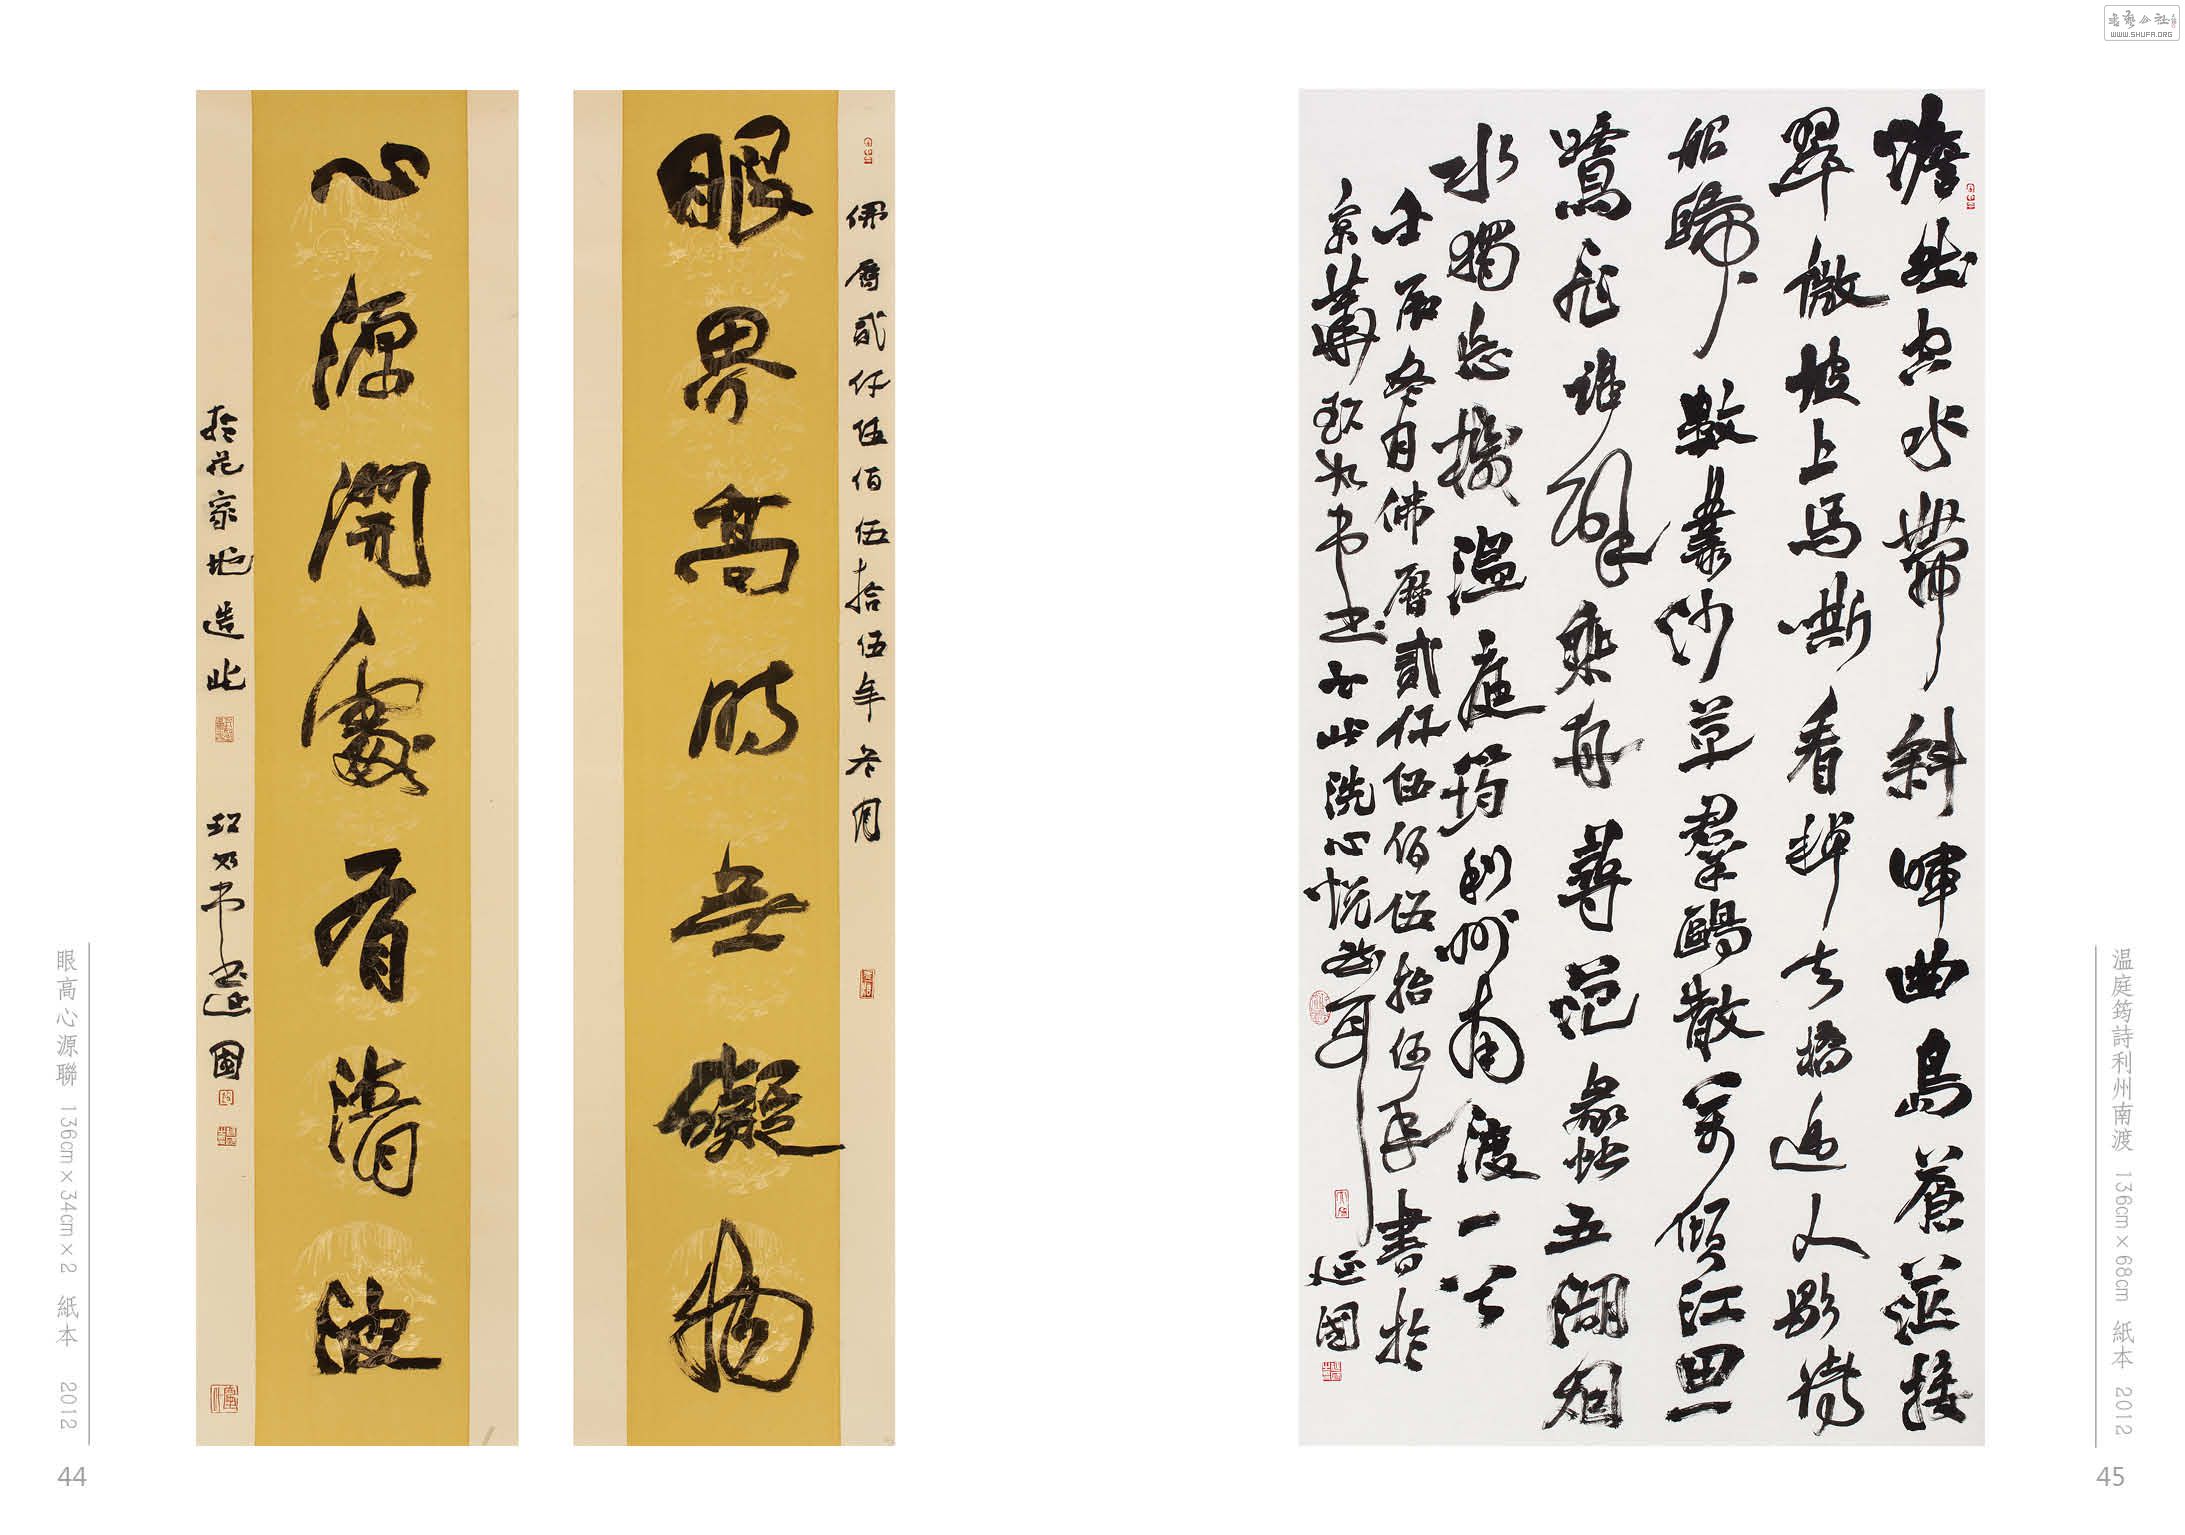 眼界高时無礙物
佛曆貳仟伍佰伍拾伍年冬月
心源開處有清波
於花家地造此
延國
眼高心源聯 136cm×34cm×2 紙本 2012
44
澹然空水帶斜暉曲島蒼茫接
翠微坡上馬嘶看棹去橋邊人歇待
船歸數叢沙草羣鷗散萬頃江田一
鷺飛誰解乘舟尋范蠡五湖烟
水獨忘機溫庭筠利州南渡一首
壬辰冬月佛曆貳仟伍佰伍拾伍年書於
京華 此洗心悅 耳 延國
温庭筠詩利州南渡 136cm×68cm 紙本 2012
45
WWW.SHUFA.ORG